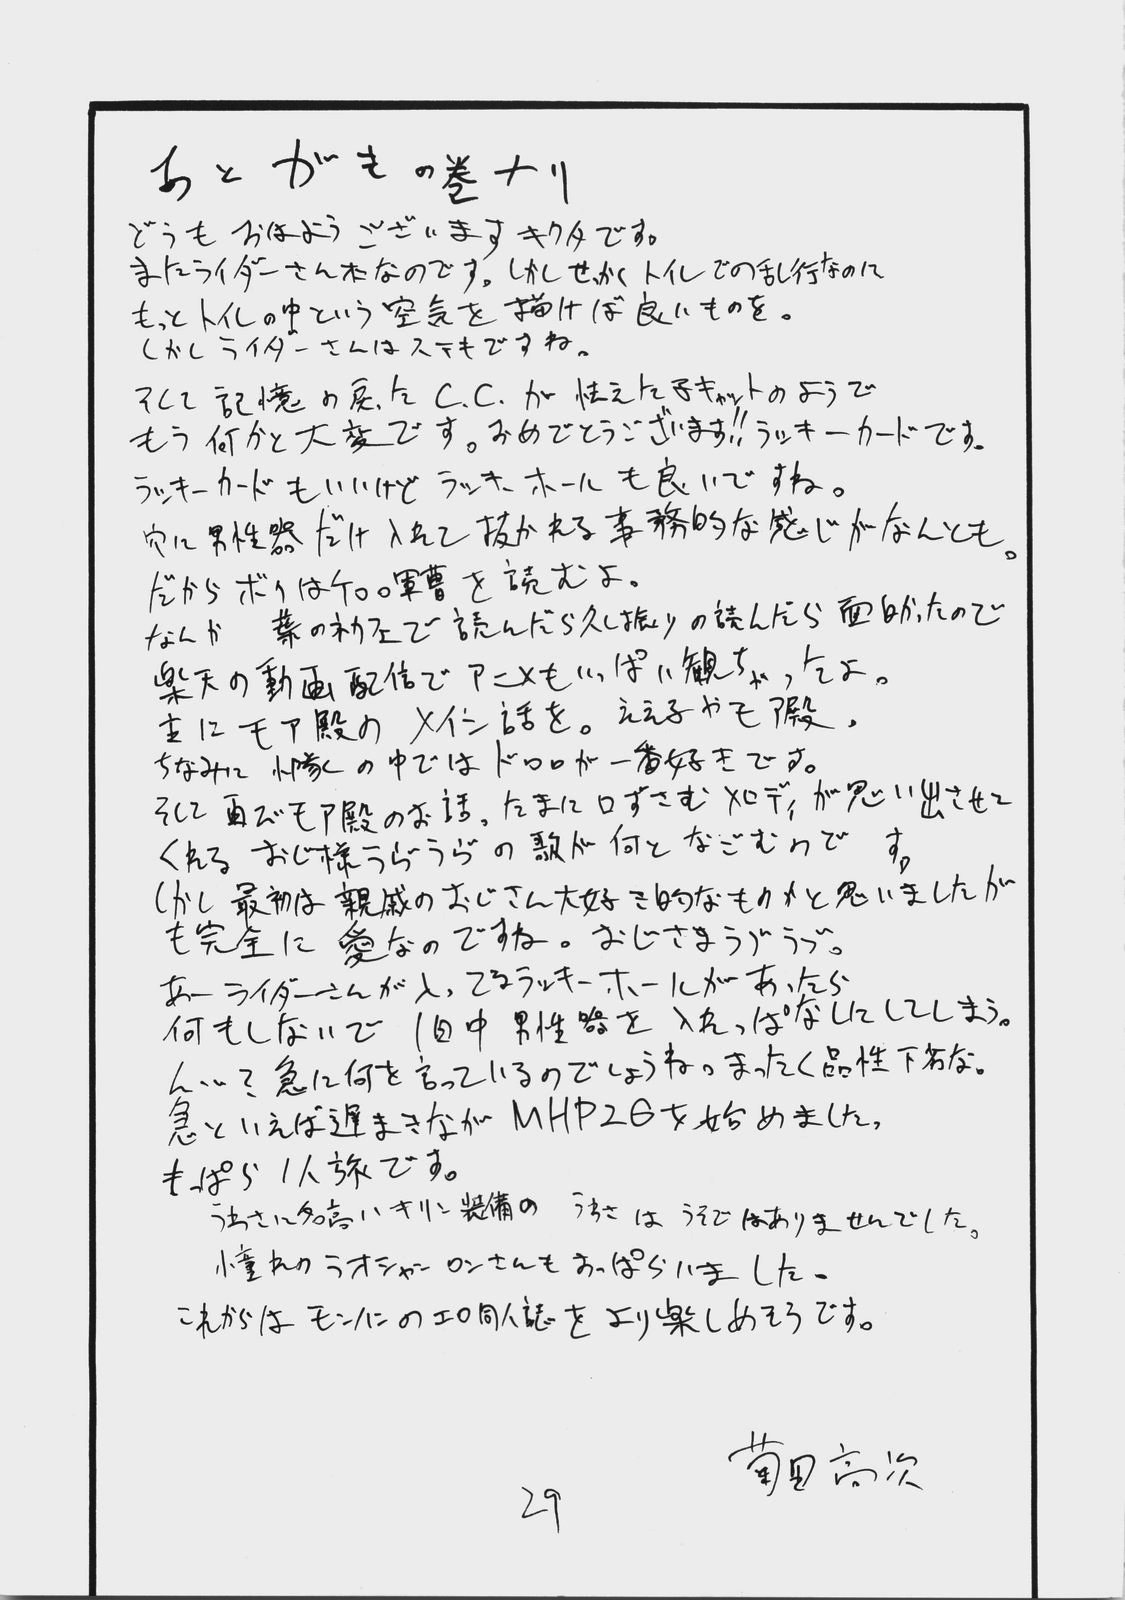 あとがきの巻ナリ
どうもおはようございますキクタです。
またライダーさん本なのです。しかしせっかくトイレでの乱行なのに
もっとトイレの中という空気を描けば良いものを。
しかしライダーさんはステキですね。
そして記憶の戻ったC.C.が怯えた子キャットのようで
もう何かと大変です。おめでとうございます!!ラッキーカードです。
ラッキーカードもいいけどラッキーホールも良いですね。
穴に男性器だけ入れて抜かれる事務的な感じがなんとも。
だからボクはケロロ軍曹を読むよ。
なんか で読んだら久し振りの読んだら面白かったので
楽天の動画配信でアニメもいっぱい観ちゃったよ。
主にモア殿のメイン話を。ええ子やモア殿。
ちなみに小隊の中ではドロロが一番好きです。
そして再びモア殿のお話。たまに口ずさむメロディが思い出させて
くれるおじ様うらうらの歌が何となごむので す。
しかし最初は親戚のおじさん大好き的なものかと思いましたが
も完全に愛なのですね。おじさまラブラブ。
あーライダーさんが入ってるラッキーホールがあったら
何もしないで1日中男性器を入れっぱなしにしてしまう。
ん…?急に何を言っているのでしょうね。まったく品性下劣な。
急といえば遅まきながMHP2Gを始めました。
もっぱら1人旅です。
うわさに名高いキリン装備のうわさはうそではありませんでした。
憧れのラオシャンロンさんもおっぱらいました。
これからはモンハンのエロ同人誌をより楽しめそうです。
菊田高次
29